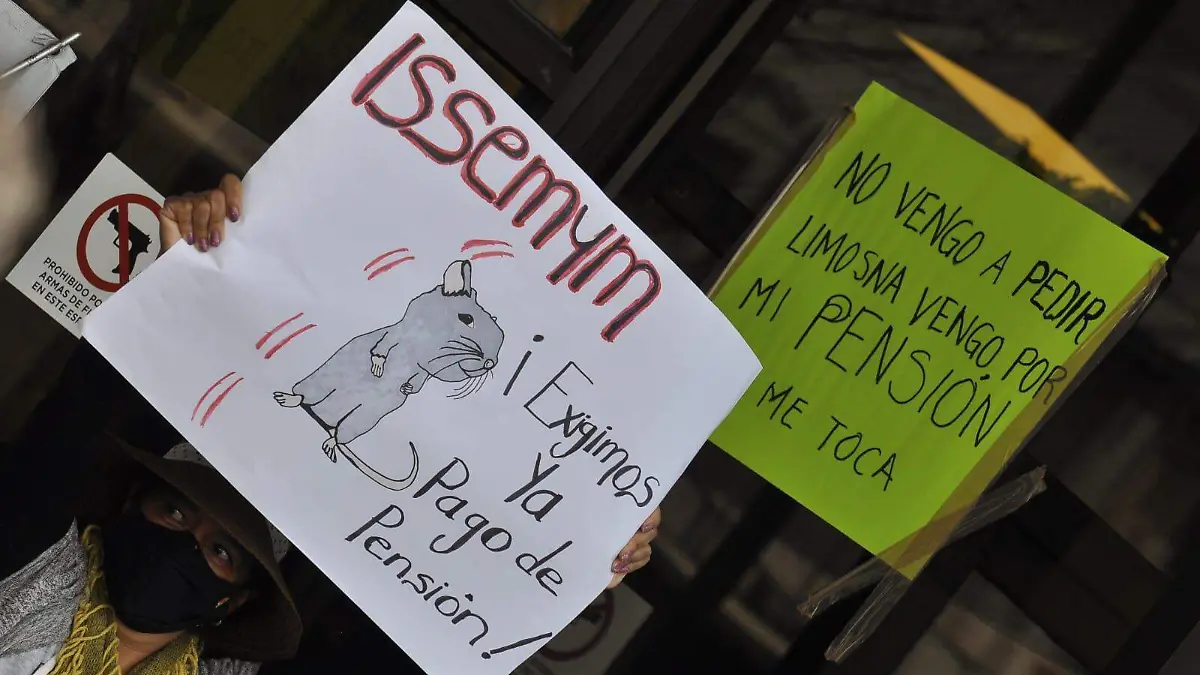 ISSemym
¡Exigimos
Ya
Pago de
Pensión!
NO VENGO A PEDIR
LIMOSNA VENGO POR
MI PENSIÓN
ME TOCA
PROHIBIDO
ARMAS DE
EN ESTE